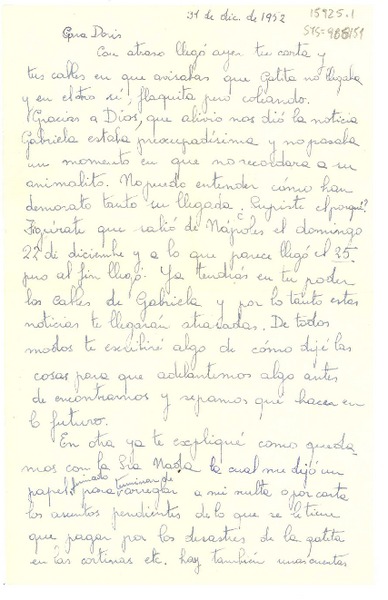 31 de dic. de 1952
15925.1
Cara Doris
Con atraso llegó ayer tu carta y
tus cables en que avisabas que Gatita no llegaba
y en el otro sí, flaquita pero coleando.
¡Gracias a Dios, que alivio nos dió la noticia
Gabriela estaba preocupadísima y no pasaba
un momento en que no recordara a su
animalito. No puedo entender cómo han
demorado tanto su llegada. Supiste el porqué?
Figúrate que salió de Nápoles el domingo
22 de diciembre y a lo que parece llegó el 25.
pero al fin llegó. Ya tendrás en tu poder
los cables de Gabriela y por lo tanto estas
noticias te llegarán atrasadas. De todos
modos te escribiré algo de cómo dejé las
cosas para que adelantemos algo antes
de encontrarnos y sepamos qué hacer en
lo futuro.
En otra ya te expliqué como queda-
mos con la Sra Nada la cual me dejó un
papel firmado para terminar de arreglar a mi vuelta o por carta
los asuntos pendientes de lo que se le tiene
que pagar por los desastres de la gatita
en las cortinas etc. hay también unas cuentas